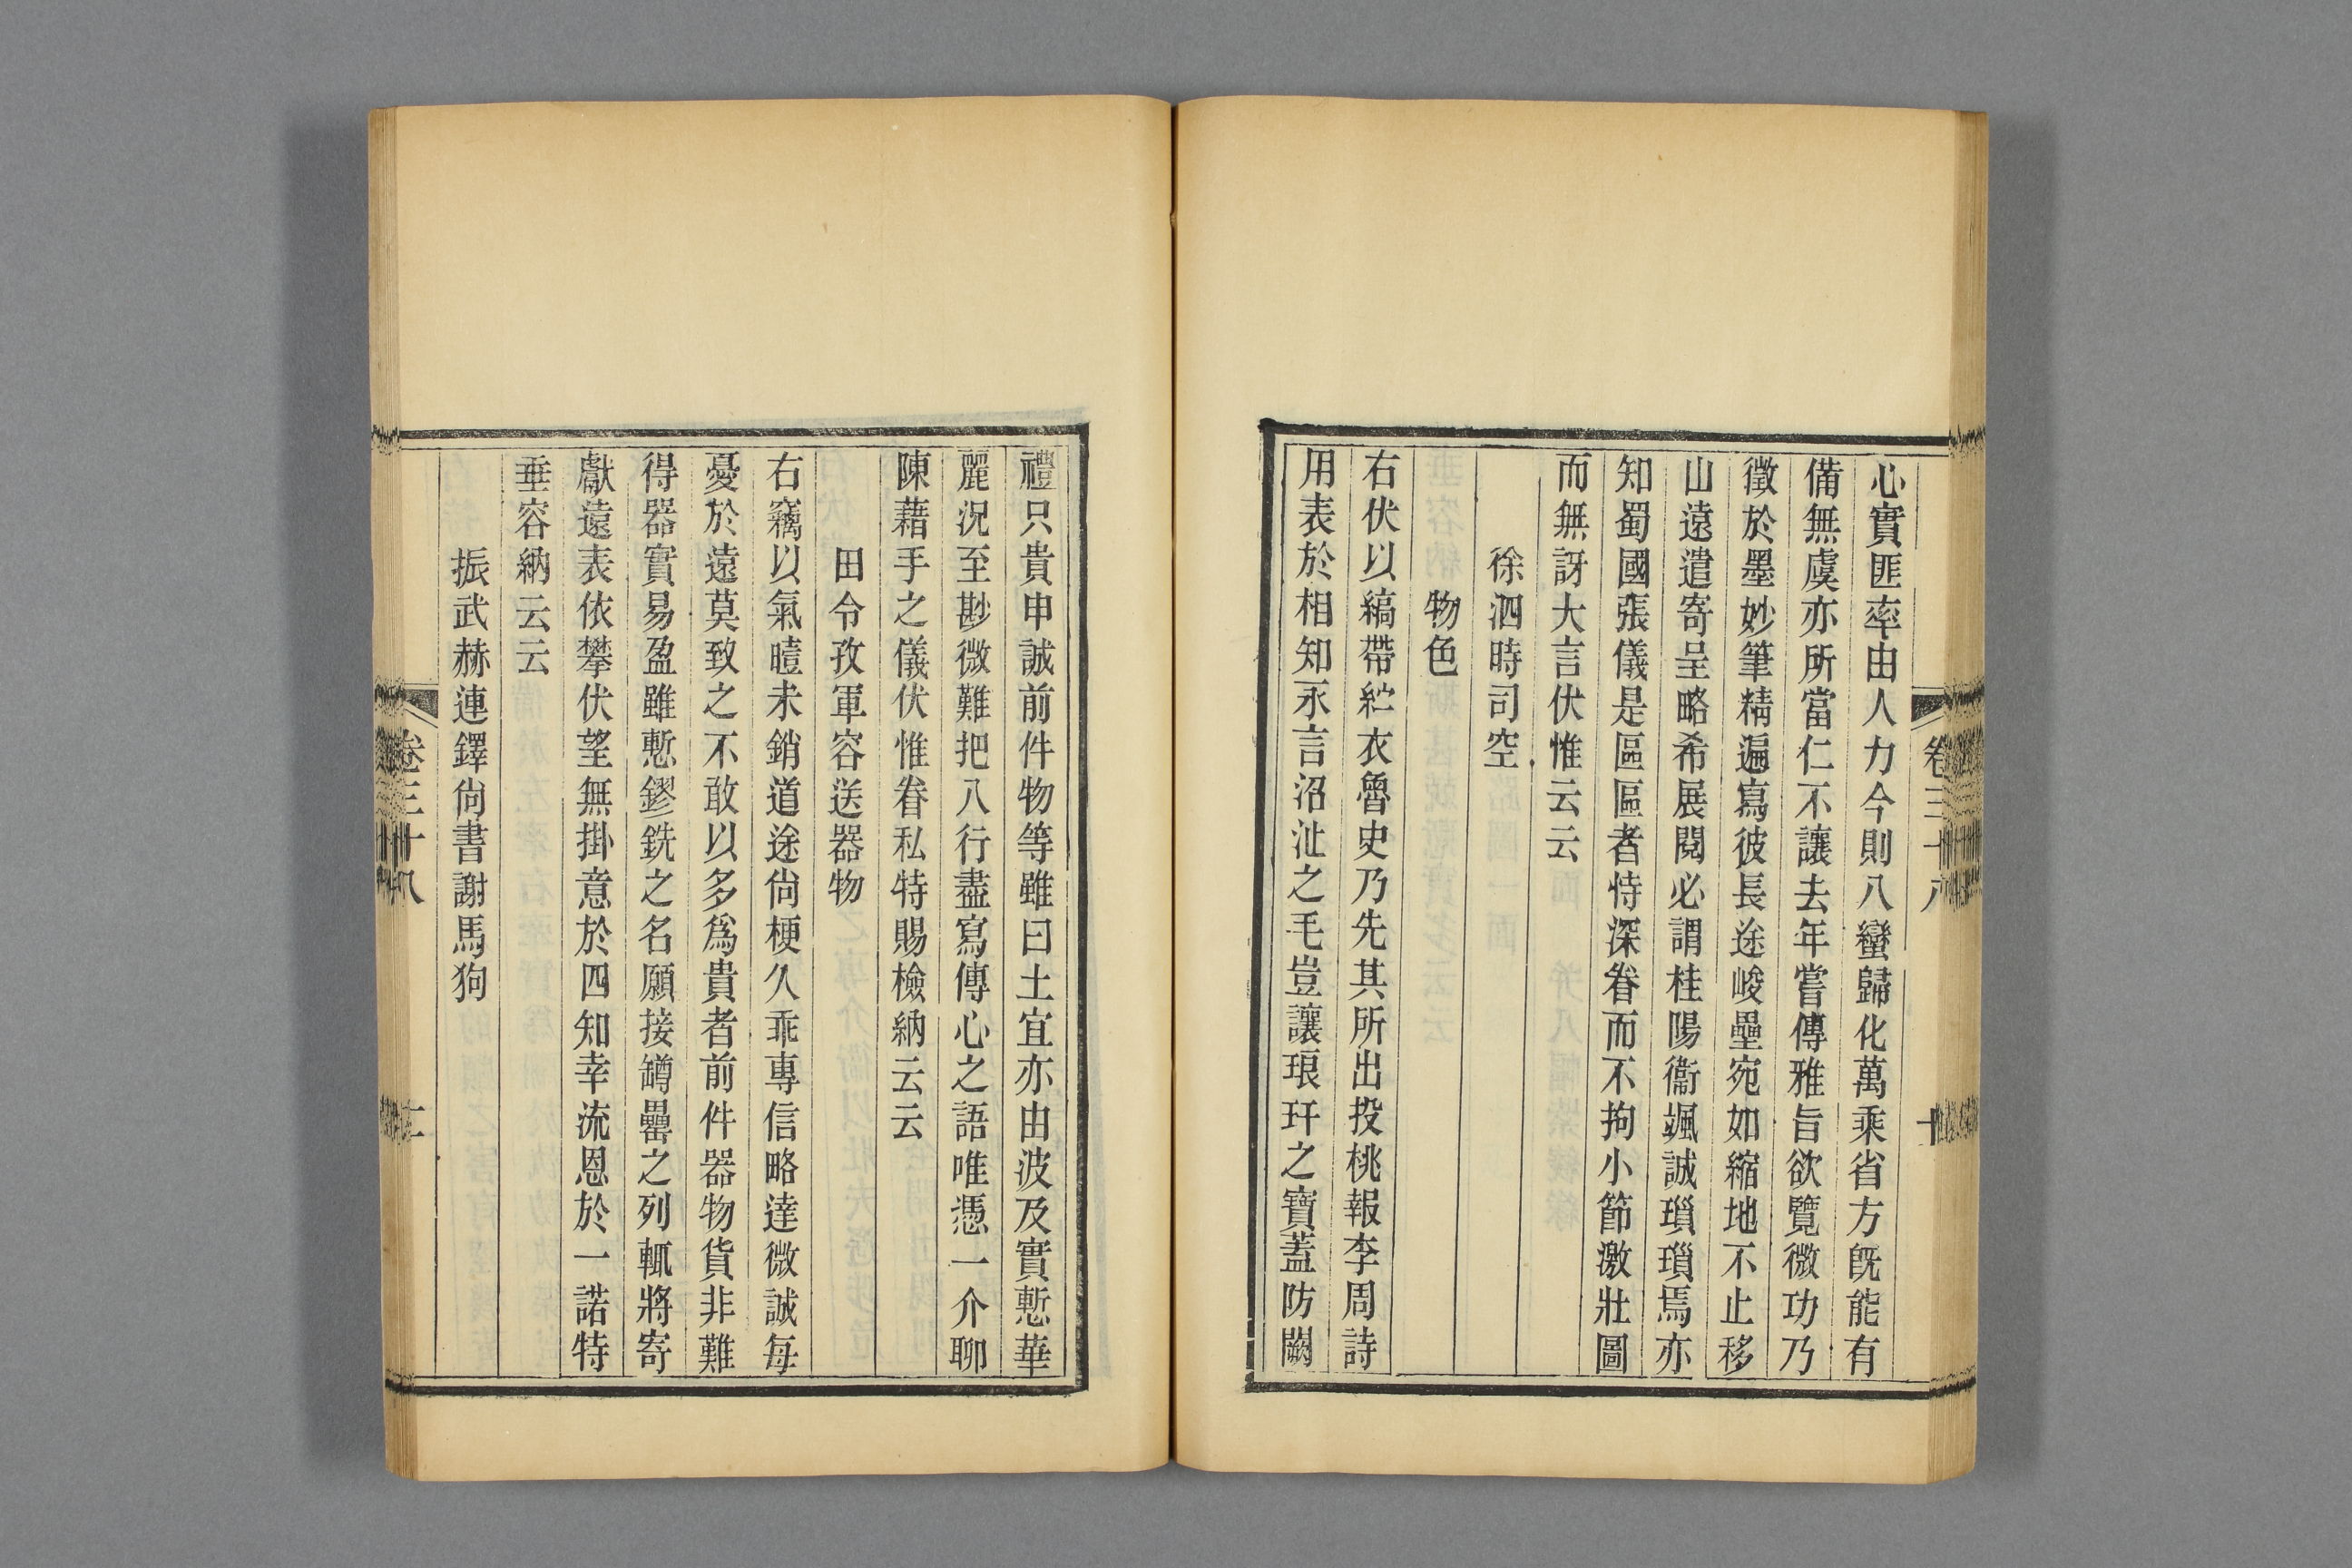 心實匪率由人力今則八蠻歸化萬乘省方旣能有
備無虞亦所當仁不讓去年嘗傳雅旨欲覽微功乃
徵於墨妙筆精遍寫彼長途峻壘宛如縮地不止移
山遠遣寄呈略希展閱必謂桂陽衞颯誠瑣瑣焉亦
知蜀國張儀是區區者恃深眷而不拘小節激壯圖
而無訝大言伏惟云云
徐泗時司空
物色
右伏以縞帶紵衣魯史乃先其所出投桃報李周詩
用表於相知永言沼沚之毛豈讓琅玕之寶蓋防闕
禮只貴申誠前件物等雖曰土宜亦由波及實慙華
麗況至尠微難把八行盡寫傳心之語唯憑一介聊
陳藉手之儀伏惟眷私特賜檢納云云
田令孜軍容送器物
右竊以氣曀未銷道途尙梗久乖專信略達微誠每
憂於遠莫致之不敢以多爲貴者前件器物貨非難
得器實易盈雖慙鏐銑之名願接罇罍之列輒將寄
獻遠表依攀伏望無掛意於四知幸流恩於一諾特
垂容納云云
振武赫連鐸尙書謝馬狗
卷三十八